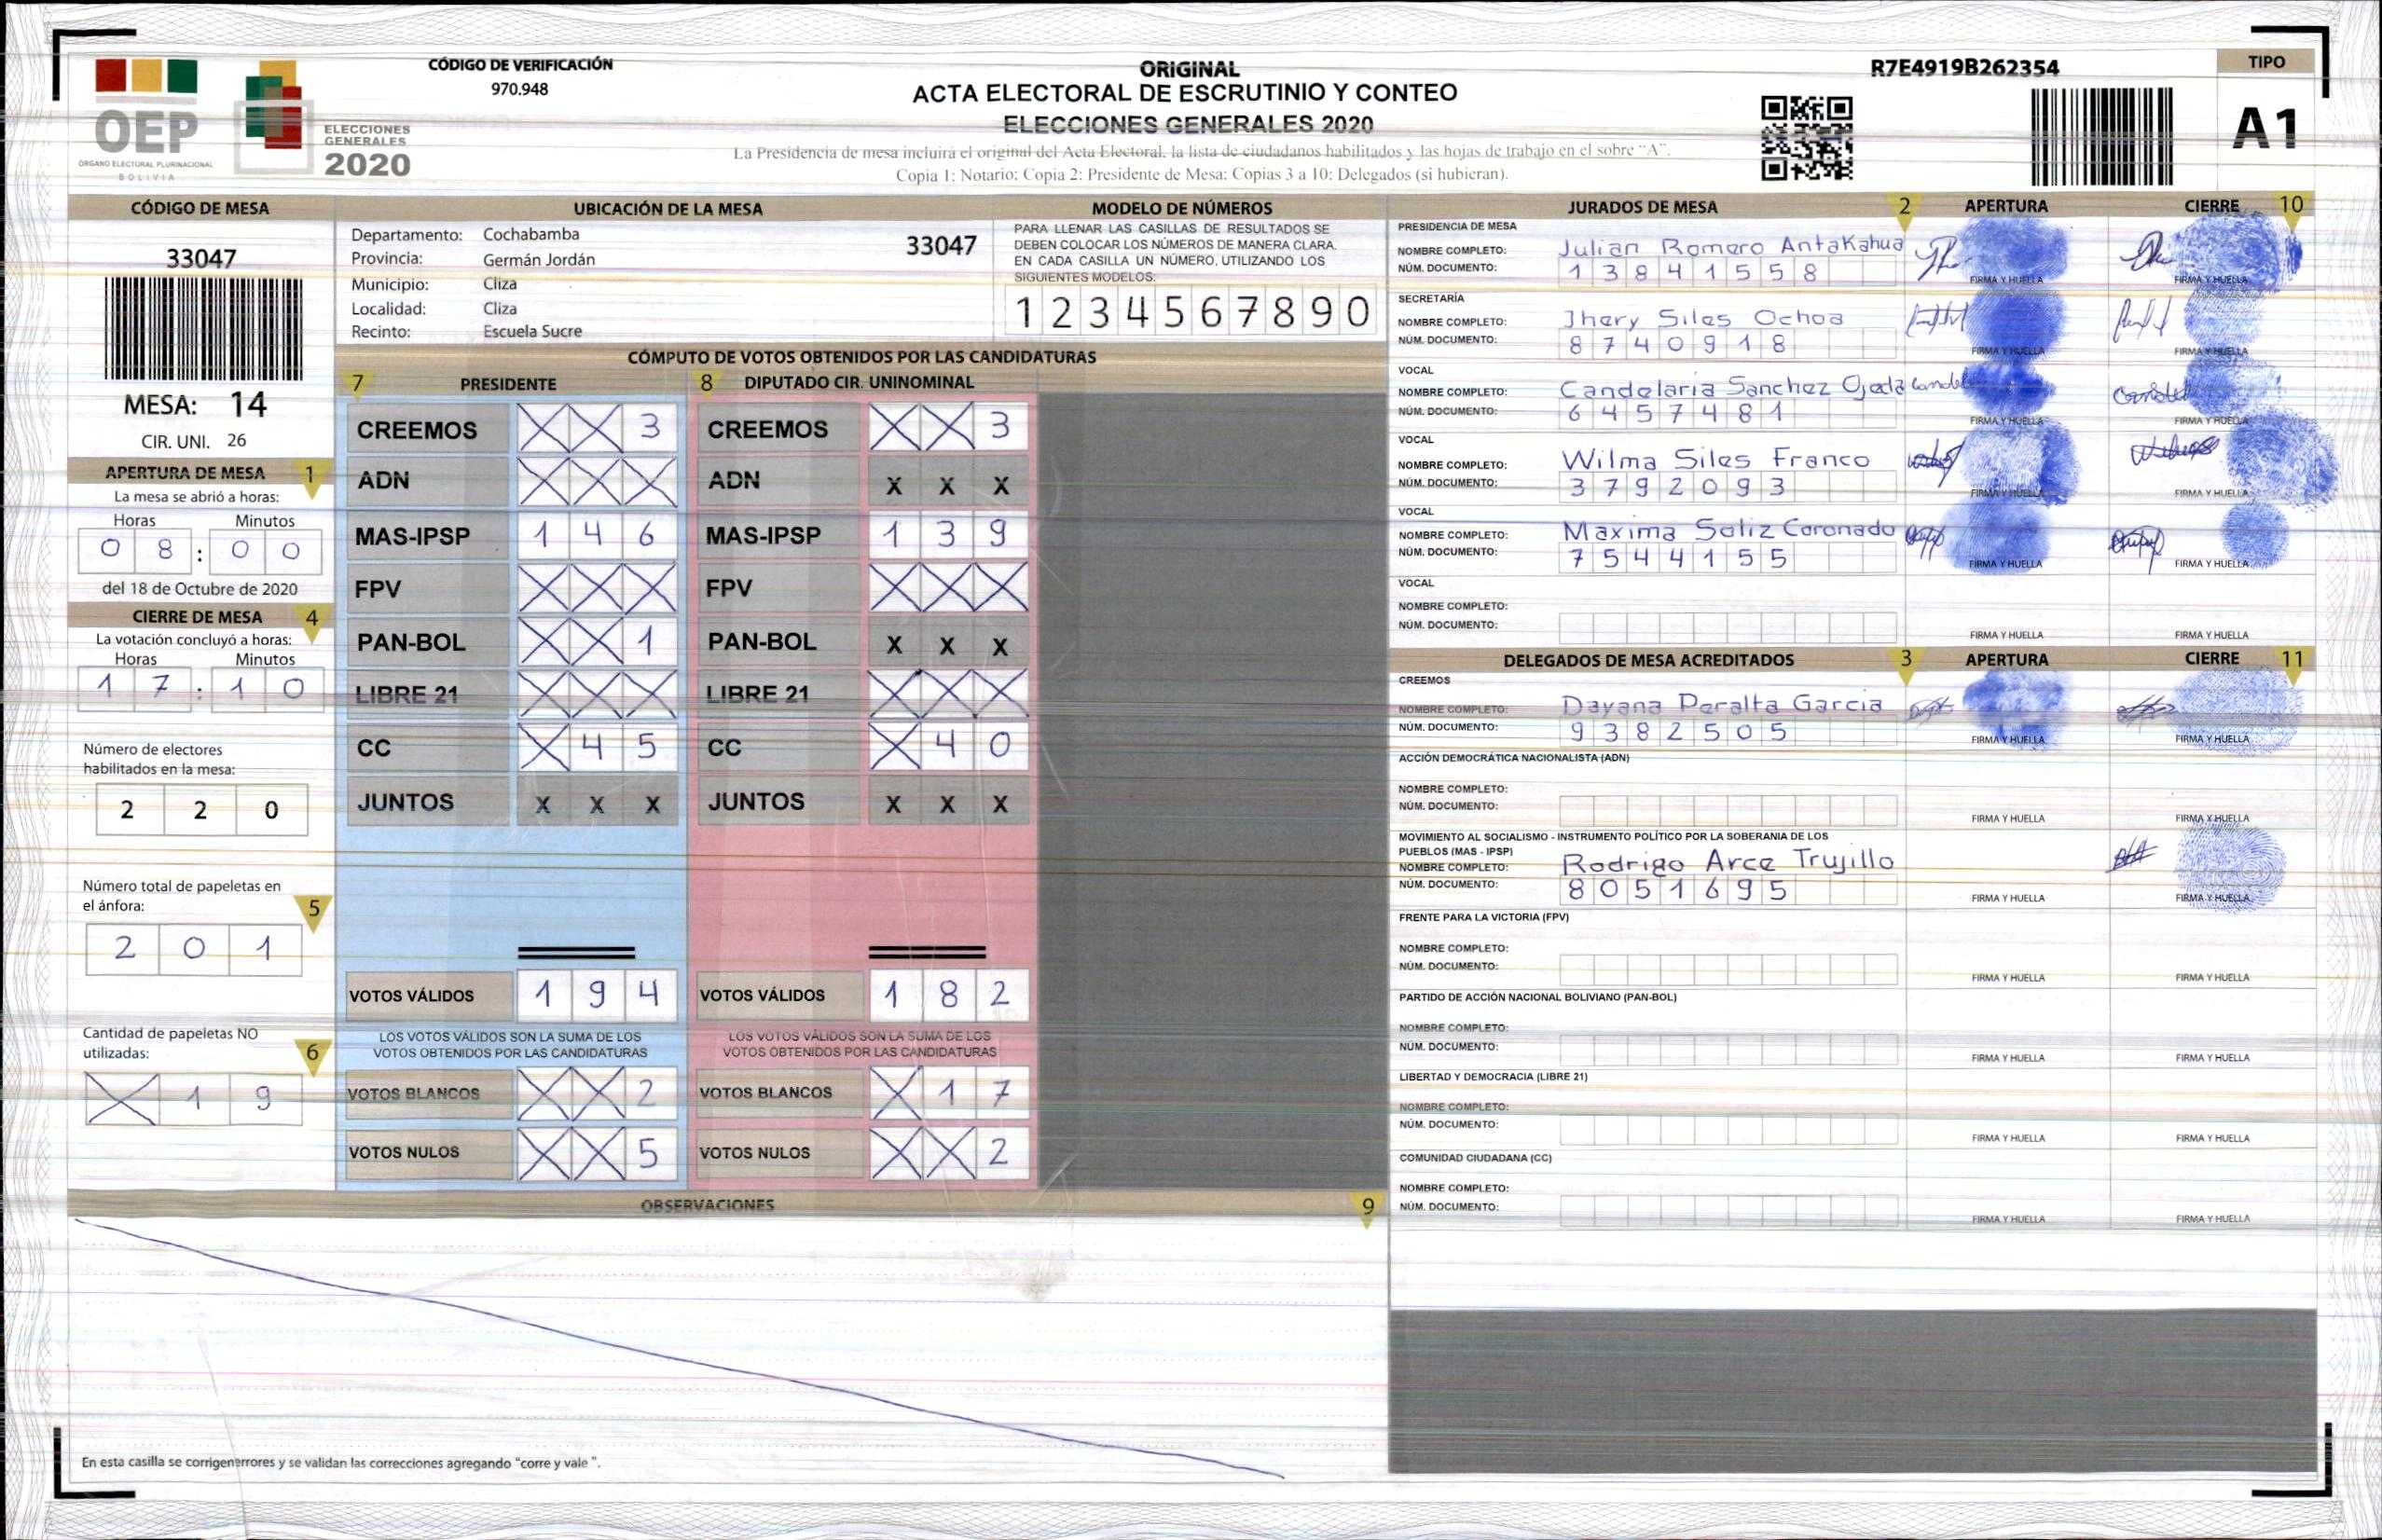 CÓDIGO DE VERIFICACIÓN
970.948
OEP
ÓRGANO ELECTORAL PLURINACIONAL
BOLIVIA
ELECCIONES
GENERALES
2020
ORIGINAL
ACTA ELECTORAL DE ESCRUTINIO Y CONTEO
ELECCIONES GENERALES 2020
La Presidencia de mesa incluirá el original del Acta Electoral, la lista de ciudadanos habilitados y las hojas de trabajo en el sobre "A".
Copia 1: Notario; Copia 2: Presidente de Mesa; Copias 3 a 10: Delegados (si hubieran).
R7E4919B262354
TIPO
A1
CÓDIGO DE MESA
33047
MESA: 14
CIR. UNI. 26
APERTURA DE MESA 1
La mesa se abrió a horas:
Horas Minutos
0 8 : 0 0
del 18 de Octubre de 2020
CIERRE DE MESA 4
La votación concluyó a horas:
Horas Minutos
1 7 : 1 0
Número de electores
habilitados en la mesa:
2 2 0
Número total de papeletas en
el ánfora: 5
2 0 1
Cantidad de papeletas NO
utilizadas: 6
X 1 9
UBICACIÓN DE LA MESA
Departamento: Cochabamba
33047
Provincia: Germán Jordán
Municipio: Cliza
Localidad: Cliza
Recinto: Escuela Sucre
MODELO DE NÚMEROS
PARA LLENAR LAS CASILLAS DE RESULTADOS SE
DEBEN COLOCAR LOS NÚMEROS DE MANERA CLARA.
EN CADA CASILLA UN NÚMERO, UTILIZANDO LOS
SIGUIENTES MODELOS:
1 2 3 4 5 6 7 8 9 0
CÓMPUTO DE VOTOS OBTENIDOS POR LAS CANDIDATURAS
7 PRESIDENTE 8 DIPUTADO CIR. UNINOMINAL
CREEMOS X X 3 CREEMOS X X 3
ADN X X X ADN X X X
MAS-IPSP 1 4 6 MAS-IPSP 1 3 9
FPV X X X FPV X X X
PAN-BOL X X 1 PAN-BOL X X X
LIBRE 21 X X X LIBRE 21 X X X
CC X 4 5 CC X 4 0
JUNTOS X X X JUNTOS X X X
VOTOS VÁLIDOS 1 9 4 VOTOS VÁLIDOS 1 8 2
LOS VOTOS VÁLIDOS SON LA SUMA DE LOS LOS VOTOS VÁLIDOS SON LA SUMA DE LOS
VOTOS OBTENIDOS POR LAS CANDIDATURAS VOTOS OBTENIDOS POR LAS CANDIDATURAS
VOTOS BLANCOS X X 2 VOTOS BLANCOS X 1 7
VOTOS NULOS X X 5 VOTOS NULOS X X 2
OBSERVACIONES 9
En esta casilla se corrigen errores y se validan las correcciones agregando "corre y vale ".
JURADOS DE MESA 2 APERTURA CIERRE 10
PRESIDENCIA DE MESA
NOMBRE COMPLETO: Julian Romero Antakahua
NÚM. DOCUMENTO: 1 3 8 4 1 5 5 8
FIRMA Y HUELLA FIRMA Y HUELLA
SECRETARÍA
NOMBRE COMPLETO: Jhery Siles Ochoa
NÚM. DOCUMENTO: 8 7 4 0 9 1 8
FIRMA Y HUELLA FIRMA Y HUELLA
VOCAL
NOMBRE COMPLETO: Candelaria Sanchez Ojeda
NÚM. DOCUMENTO: 6 4 5 7 4 8 1
FIRMA Y HUELLA FIRMA Y HUELLA
VOCAL
NOMBRE COMPLETO: Wilma Siles Franco
NÚM. DOCUMENTO: 3 7 9 2 0 9 3
FIRMA Y HUELLA FIRMA Y HUELLA
VOCAL
NOMBRE COMPLETO: Maxima Soliz Coronado
NÚM. DOCUMENTO: 7 5 4 4 1 5 5
FIRMA Y HUELLA FIRMA Y HUELLA
VOCAL
NOMBRE COMPLETO:
NÚM. DOCUMENTO:
FIRMA Y HUELLA FIRMA Y HUELLA
DELEGADOS DE MESA ACREDITADOS 3 APERTURA CIERRE 11
CREEMOS
NOMBRE COMPLETO: Dayana Peralta Garcia
NÚM. DOCUMENTO: 9 3 8 2 5 0 5
FIRMA Y HUELLA FIRMA Y HUELLA
ACCIÓN DEMOCRÁTICA NACIONALISTA (ADN)
NOMBRE COMPLETO:
NÚM. DOCUMENTO:
FIRMA Y HUELLA FIRMA Y HUELLA
MOVIMIENTO AL SOCIALISMO - INSTRUMENTO POLÍTICO POR LA SOBERANIA DE LOS
PUEBLOS (MAS - IPSP)
NOMBRE COMPLETO: Rodrigo Arce Trujillo
NÚM. DOCUMENTO: 8 0 5 1 6 9 5
FIRMA Y HUELLA FIRMA Y HUELLA
FRENTE PARA LA VICTORIA (FPV)
NOMBRE COMPLETO:
NÚM. DOCUMENTO:
FIRMA Y HUELLA FIRMA Y HUELLA
PARTIDO DE ACCIÓN NACIONAL BOLIVIANO (PAN-BOL)
NOMBRE COMPLETO:
NÚM. DOCUMENTO:
FIRMA Y HUELLA FIRMA Y HUELLA
LIBERTAD Y DEMOCRACIA (LIBRE 21)
NOMBRE COMPLETO:
NÚM. DOCUMENTO:
FIRMA Y HUELLA FIRMA Y HUELLA
COMUNIDAD CIUDADANA (CC)
NOMBRE COMPLETO:
NÚM. DOCUMENTO:
FIRMA Y HUELLA FIRMA Y HUELLA